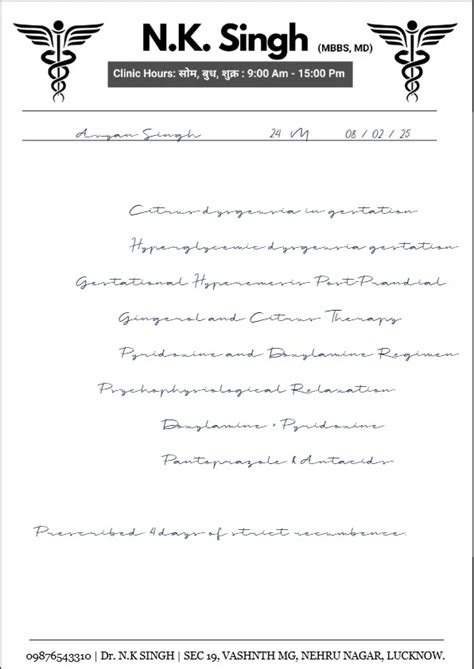 N.K. Singh (MBBS, MD)
Clinic Hours: सोम, बुध, शुक्र : 9:00 Am - 15:00 Pm
Aryan Singh 24 M 08 / 02 / 25
Citrus dysgeusia in gestation
Hyperglycemic dysgeusia gestation
Gestational Hyperemesis Post-Prandial
Gingerol and Citrus Therapy
Pyridoxine and Doxylamine Regimen
Psychophysiological Relaxation
Doxylamine + Pyridoxine
Pantoprazole & Antacids
Prescribed 4days of strict recumbence.
09876543310 | Dr. N.K SINGH | SEC 19, VASHNTH MG, NEHRU NAGAR, LUCKNOW.